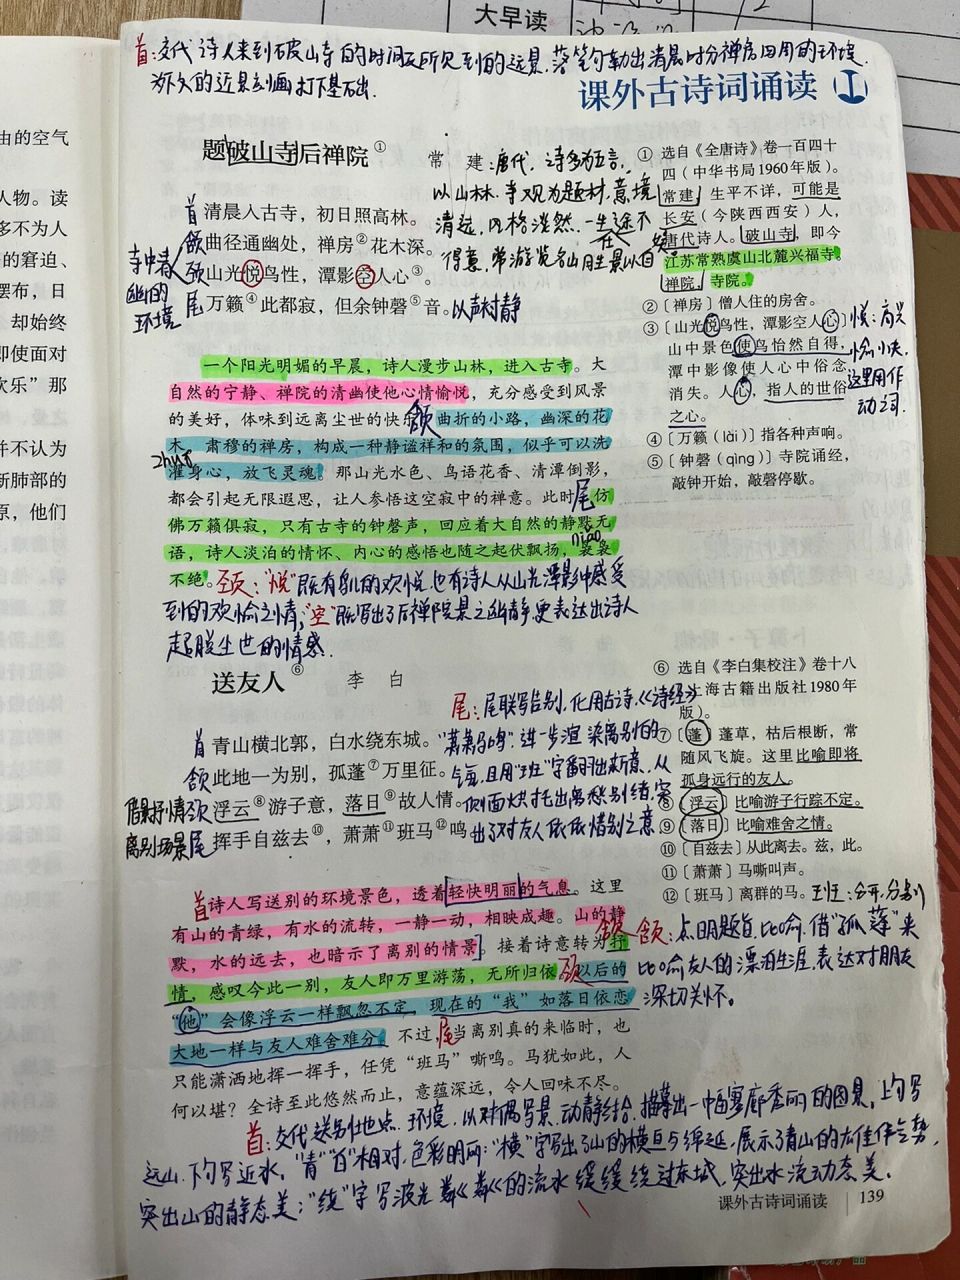 大早读
首:交代诗人来到破山寺的时间及所见到的远景,落笔勾勒出清晨时分禅房四周的环境,
为下文的近景刻画打下基础.
课外古诗词诵读
题破山寺后禅院①
常 建:唐代,诗多为五言,
以山林、寺观为题材,意境
清远,风格淡然,一生
得意,常游览名山胜景以自娱
首 清晨入古寺,初日照高林。
颔 曲径通幽处,禅房②花木深。
颈 山光悦鸟性,潭影空人心③。
尾 万籁④此都寂,但余钟磬⑤音。以声衬静
寺中清
幽的
环境
① 选自《全唐诗》卷一百四十
四(中华书局1960年版)。
常建,生平不详,可能是
长安(今陕西西安)人,
唐代诗人。破山寺,即今
江苏常熟虞山北麓兴福寺。
禅院,寺院。
②〔禅房〕僧人住的房舍。
③〔山光悦鸟性,潭影空人心〕
山中景色使鸟怡然自得,
潭中影像使人心中俗念
消失。人心,指人的世俗
之心。
悦:高兴
愉快,
这里用作
动词.
④〔万籁(lài)〕指各种声响。
⑤〔钟磬(qìng)〕寺院诵经,
敲钟开始,敲磬停歇。
一个阳光明媚的早晨,诗人漫步山林,进入古寺。大
自然的宁静、禅院的清幽使他心情愉悦,充分感受到风景
的美好,体味到远离尘世的快乐。颔 曲折的小路,幽深的花
木,肃穆的禅房,构成一种静谧祥和的氛围,似乎可以洗
zhuó
濯身心,放飞灵魂。那山光水色、鸟语花香、清潭倒影,
都会引起无限遐思,让人参悟这空寂中的禅意。此时,尾 仿
佛万籁俱寂,只有古寺的钟磬声,回应着大自然的静默无
niǎo
语,诗人淡泊的情怀、内心的感悟也随之起伏飘扬,袅袅
不绝。颈:"悦"既有鸟儿的欢悦,也有诗人从山光潭影中感受
到的欢愉之情;"空"既写出了后禅院景之幽静,更表达出诗人
超脱尘世的情感.
送友人⑥ 李 白
首 青山横北郭,白水绕东城。
颔 此地一为别,孤蓬⑦万里征。
颈 浮云⑧游子意,落日⑨故人情。
尾 挥手自兹去⑩,萧萧⑪班马⑫鸣
借景抒情
离别场景
尾:尾联写告别,化用古诗《诗经》
"萧萧马鸣",进一步渲染离别的
且用"班"字翻出新意,从
侧面烘托出离愁别绪,写
出了对友人依依惜别之意
⑥ 选自《李白集校注》卷十八
海古籍出版社1980年
版)。
⑦〔蓬〕蓬草,枯后根断,常
随风飞旋。这里比喻即将
孤身远行的友人。
⑧〔浮云〕比喻游子行踪不定。
⑨〔落日〕比喻难舍之情。
⑩〔自兹去〕从此离去。兹,此。
⑪〔萧萧〕马嘶叫声。
⑫〔班马〕离群的马。班:分开,分别
首 诗人写送别的环境景色,透着轻快明丽的气息。这里
有山的青绿,有水的流转,一静一动,相映成趣。山的静
默,水的远去,也暗示了离别的情景。接着诗意转为抒
情,感叹今此一别,友人即万里游荡,无所归依。颈 以后的
"他"会像浮云一样飘忽不定,现在的"我"如落日依恋
大地一样与友人难舍难分。不过,尾 当离别真的来临时,也
只能潇洒地挥一挥手,任凭"班马"嘶鸣。马犹如此,人
何以堪?全诗至此悠然而止,意蕴深远,令人回味不尽。
颔:点明题旨,比喻.借"孤蓬"来
比喻友人的漂泊生涯,表达对朋友
深切关怀。
首:交代送别地点、环境,以对偶写景,动静结合,描摹出一幅寥廓秀丽的图景,上句写
远山,下句写近水,"青""白"相对,色彩明丽;"横"字写出了山的横亘与绵延,展示了青山的雄伟气势,
突出山的静态美;"绕"字写波光粼粼的流水缓缓绕过东城,突出水流动态美.
课外古诗词诵读 139
由的空气
人物。读
多不为人
的窘迫、
摆布,日
却始终
即使面对
欢乐"那
并不认为
新肺部的
原,他们